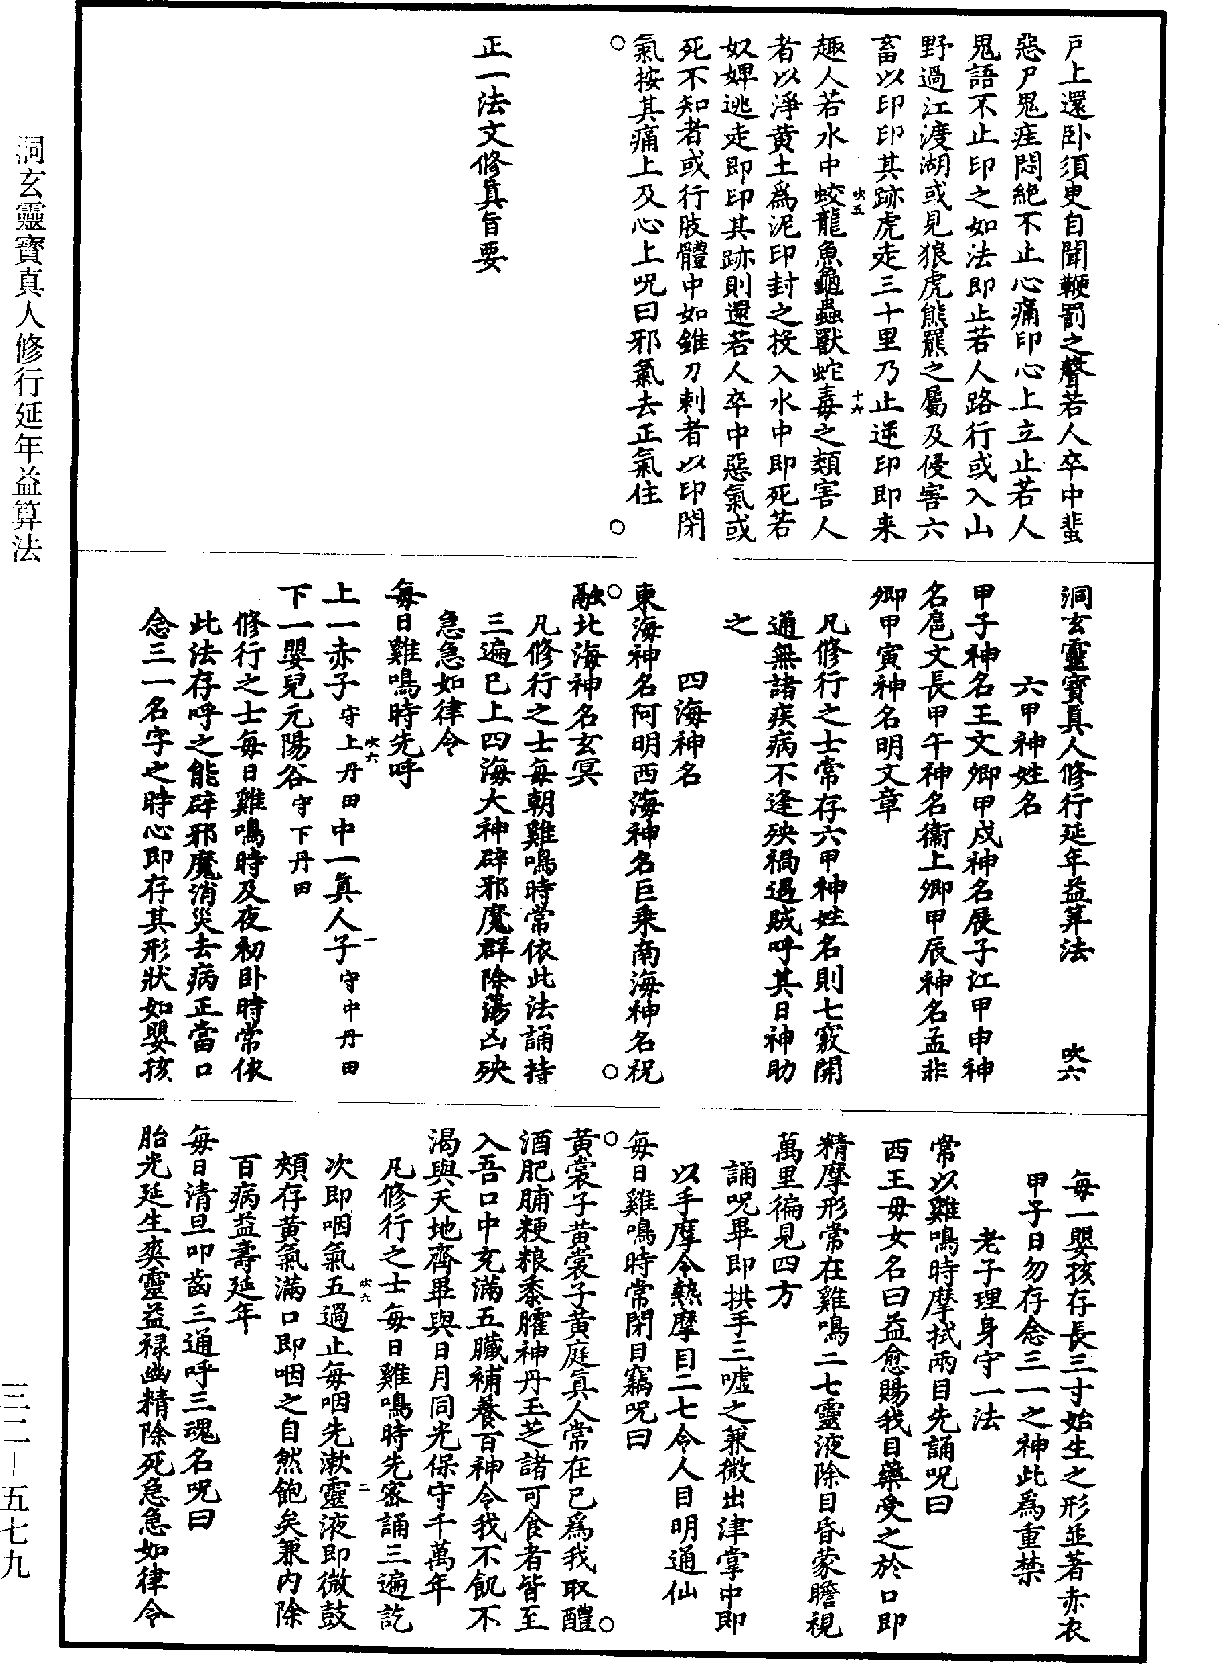 洞玄靈寶真人修行延年益算法
三二－五七九
戶上還卧須臾自聞鞭罰之聲若人卒中蜚
惡尸鬼疰悶絶不止心痛印心上立止若人
鬼語不止印之如法即止若人路行或入山
野過江渡湖或見狼虎熊羆之屬及侵害六
畜以印印其跡虎走三十里乃止逆印即来
吹五
十六
趣人若水中蛟龍魚龜蟲獸蛇毒之類害人
者以淨黃土爲泥印封之投入水中即死若
奴婢逃走即印其跡則還若人卒中惡氣或
死不知者或行肢體中如錐刀刺者以印閉
氣按其痛上及心上呪曰邪氣去正氣住
正一法文修真旨要
洞玄靈寶真人修行延年益筭法
吹六
六甲神姓名
甲子神名王文卿甲戌神名展子江甲申神
名扈文長甲午神名衞上卿甲辰神名孟非
卿甲寅神名明文章
凡修行之士常存六甲神姓名則七竅開
通無諸疾病不逢殃禍遇賊呼其日神助
之
四海神名
東海神名阿明西海神名巨乘南海神名祝
融北海神名玄冥
凡修行之士每朝雞鳴時常依此法誦持
三遍已上四海大神辟邪魔群除蕩凶殃
急急如律令
每日雞鳴時先呼
吹六
一
上一赤子守上丹田中一真人子守中丹田
下一嬰兒元陽谷守下丹田
修行之士每日雞鳴時及夜初卧時常依
此法存呼之能辟邪魔消災去病正當口
念三一名字之時心即存其形狀如嬰孩
每一嬰孩存長三寸始生之形並著赤衣
甲子日勿存念三一之神此爲重禁
老子理身守一法
常以雞鳴時摩拭兩目先誦呪曰
西王母女名曰益愈賜我目藥受之於口即
精摩形常在雞鳴二七靈液除目昏蒙瞻視
萬里徧見四方
誦呪畢即拱手三噓之兼微出津掌中即
以手摩令熱摩目二七令人目明通仙
每日雞鳴時常閉目竊呪曰
黄裳子黄裳子黄庭真人常在已爲我取醴
酒肥脯粳粮黍臛神丹玉芝諸可食者皆至
入吾口中充滿五臟補養百神令我不飢不
渴與天地齊畢與日月同光保守千萬年
凡修行之士每日雞鳴時先密誦三遍訖
吹六
二
次即咽氣五過止每咽先漱靈液即微鼓
頰存黄氣滿口即咽之自然飽矣兼内除
百病益壽延年
每日清旦叩齒三通呼三魂名呪曰
胎光延生爽靈益禄幽精除死急急如律令